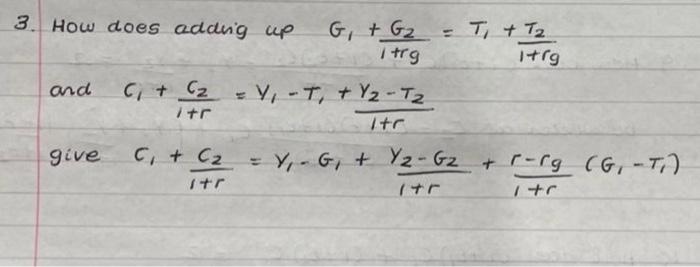 3. How does adding up G₁ + G₂/(1+rg) = T₁ + T₂/(1+rg)
and C₁ + C₂/(1+r) = Y₁ - T₁ + (Y₂ - T₂)/(1+r)
give C₁ + C₂/(1+r) = Y₁ - G₁ + (Y₂ - G₂)/(1+r) + (r - rg)/(1+r) (G₁ - T₁)